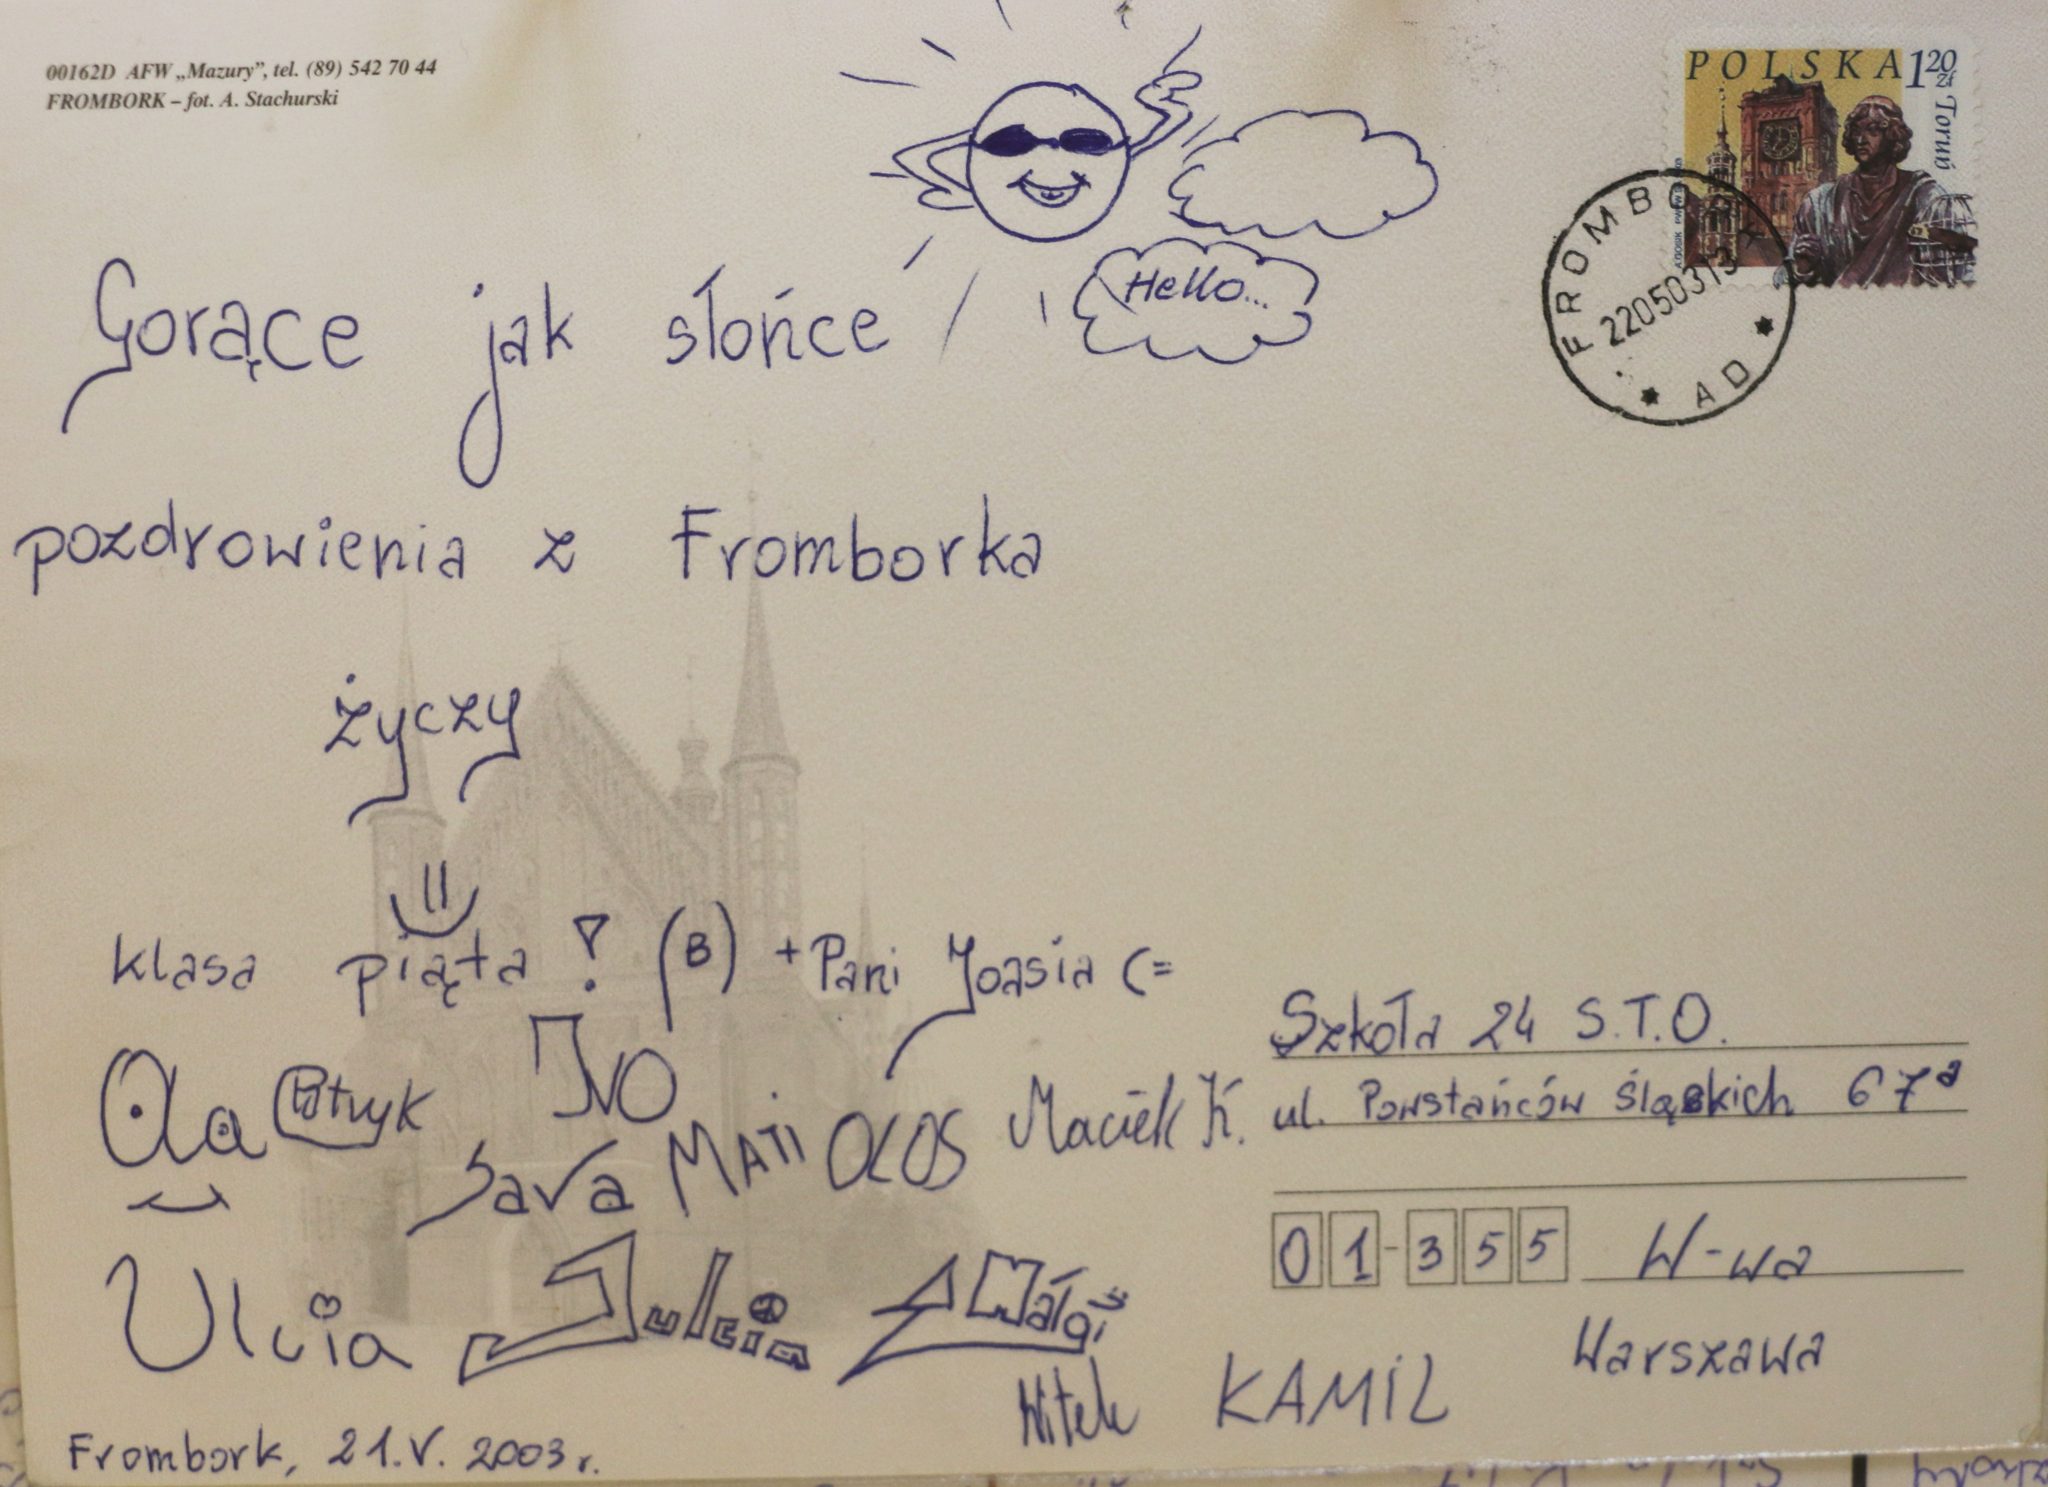 00162D AFW „Mazury”, tel. (89) 542 70 44
FROMBORK – fot. A. Stachurski
POLSKA 1,20 zł
Toruń
FROMBORK
22050313
AD
Hello...
Gorące jak słońce
pozdrowienia z Fromborka
życzy
klasa piąta! (B) + Pani Joasia (=
Ola Patryk IVO
Sara MATI OLOS Maciek K.
Ulcia Julcia Małgi
Witek KAMIL
Frombork, 21.V. 2003 r.
Szkoła 24 S.T.O.
ul. Powstańców Śląskich 67a
01-355 W-wa
Warszawa